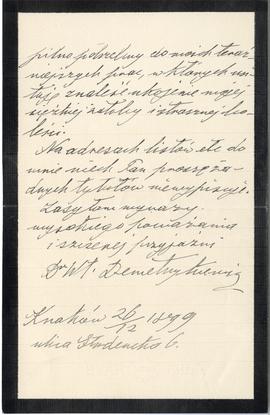 pilno potrzebny do moich teraź-
niejszych prac, w których usi-
łuję znaleść ukojenie mojej
ciężkiej żałoby i strasznej bo-
leści.
Na adresach listów etc do
mnie niech Pan proszę ża-
dnych tytułów nie wypisuje.
Łączę tom wyrazy
wysokiego poważania
i szczerej przyjaźni
Dr Wł. Demetrykiewicz
Kraków 26/12 1899
ulica Studencka 6.